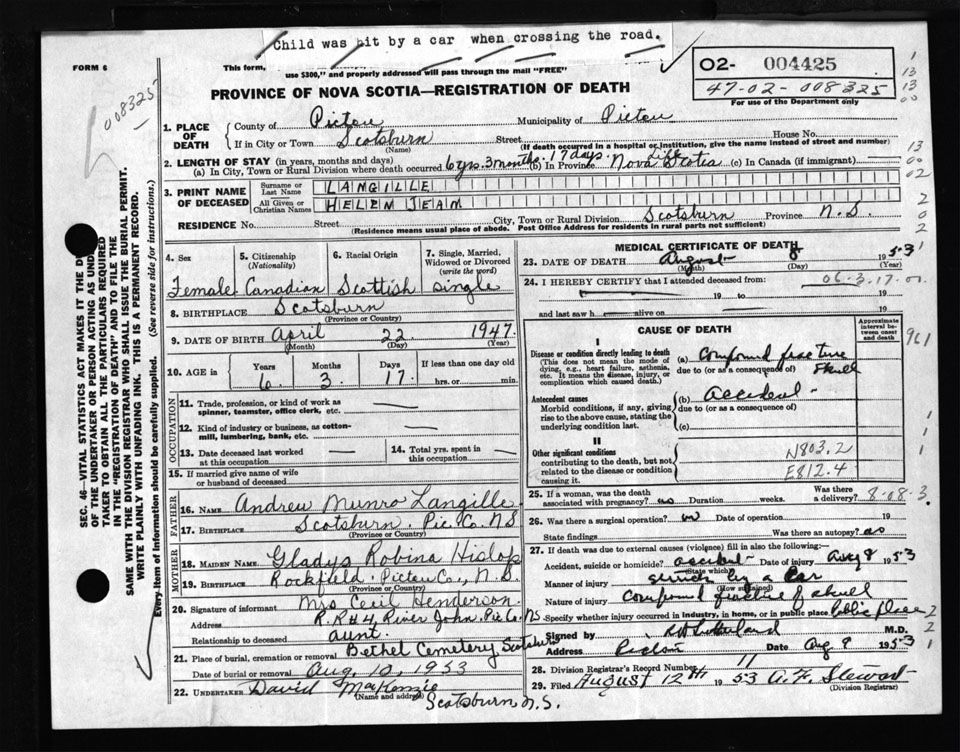 Child was hit by a car when crossing the road.
FORM 6
This form, use $300," and properly addressed will pass through the mail "FREE"
O2- 004425
47-02-008325
For use of the Department only
008325
PROVINCE OF NOVA SCOTIA—REGISTRATION OF DEATH
1. PLACE OF DEATH County of Pictou Municipality of Pictou
If in City or Town Scotsburn Street House No.
(Name) (If death occurred in a hospital or institution, give the name instead of street and number)
2. LENGTH OF STAY (in years, months and days)
(a) In City, Town or Rural Division where death occurred 6 yrs. 3 months. 17 days (b) In Province Life Nova Scotia (c) In Canada (if immigrant)
3. PRINT NAME OF DECEASED Surname or Last Name LANGILLE
All Given or Christian Names HELEN JEAN
RESIDENCE No. Street City, Town or Rural Division Scotsburn Province N.S.
(Residence means usual place of abode. Post Office Address for residents in rural parts not sufficient)
4. Sex Female
5. Citizenship (Nationality) Canadian
6. Racial Origin Scottish
7. Single, Married, Widowed or Divorced (write the word) single
8. BIRTHPLACE Scotsburn
(Province or Country)
9. DATE OF BIRTH April 22 1947
(Month) (Day) (Year)
10. AGE in Years 6 Months 3 Days 17 If less than one day old hrs. or min.
OCCUPATION
11. Trade, profession, or kind of work as spinner, teamster, office clerk, etc. —
12. Kind of industry or business, as cotton-mill, lumbering, bank, etc. —
13. Date deceased last worked at this occupation —
14. Total yrs. spent in this occupation —
15. If married give name of wife or husband of deceased
FATHER
16. NAME Andrew Munro Langille
17. BIRTHPLACE Scotsburn. Pic. Co. N.S.
(Province or Country)
MOTHER
18. MAIDEN NAME Gladys Robina Hislop
19. BIRTHPLACE Rockfield. Pictou Co., N.S.
(Province or Country)
20. Signature of informant Mrs Cecil Henderson
Address R.R #4, River John. Pic. Co. N.S
Relationship to deceased aunt.
21. Place of burial, cremation or removal Bethel Cemetery Scotsburn
Date of burial or removal Aug. 10, 1953
22. UNDERTAKER David MacKenzie
(Name and address) Scotsburn N.S.
MEDICAL CERTIFICATE OF DEATH
23. DATE OF DEATH August 8 1953
(Month) (Day) (Year)
24. I HEREBY CERTIFY that I attended deceased from: 06-3-17-00
19 to 19
and last saw h alive on 19
CAUSE OF DEATH
Approximate interval between onset and death
I
Disease or condition directly leading to death (a) Compound fracture skull
(This does not mean the mode of dying, e.g., heart failure, asthenia, etc. It means the disease, injury, or complication which caused death.)
due to (or as a consequence of)
Antecedent causes (b) accident
Morbid conditions, if any, giving rise to the above cause, stating the underlying condition last.
due to (or as a consequence of)
(c)
II
Other significant conditions N803.2
contributing to the death, but not related to the disease or condition causing it. E812.4
25. If a woman, was the death associated with pregnancy? no Duration weeks. Was there a delivery? 8-08-3
26. Was there a surgical operation? no Date of operation 19
State findings Was there an autopsy? no
27. If death was due to external causes (violence) fill in also the following:
Accident, suicide or homicide? accident Date of injury Aug 8 1953
(State which)
Manner of injury struck by a car
(How sustained)
Nature of injury Compound fracture of skull
Specify whether injury occurred in industry, in home, or in public place Public place
Signed by M.D.
Address Pictou Date Aug 9 1953
28. Division Registrar's Record Number 11
29. Filed August 12th 1953 A. F. Stewart
(Division Registrar)
SEC. 46—VITAL STATISTICS ACT MAKES IT THE
OF THE UNDERTAKER OR PERSON ACTING AS UND
TAKER TO OBTAIN ALL THE PARTICULARS REQUIRED
IN THE "REGISTRATION OF DEATH" AND TO FILE THE
SAME WITH THE DIVISION REGISTRAR WHO SHALL ISSUE THE BURIAL PERMIT.
WRITE PLAINLY WITH UNFADING INK. THIS IS A PERMANENT RECORD.
Every item of Information should be carefully supplied. (See reverse side for instructions.)
1
13
13
00
13
00
02
2
0
2
1
961
1
1
1
2
2
1